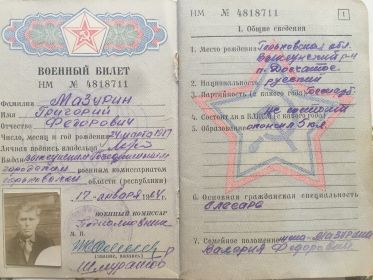 ВОЕННЫЙ БИЛЕТ
НМ № 4818711
Фамилия Мазурин
Имя Григорий
Отчество Федорович
Число, месяц и год рождения
Личная подпись владельца
Выдан
городским военным комиссариатом
области (республики)
17 января 1964
ВОЕННЫЙ КОМИССАР
М. П.
НМ № 4818711
1
I. Общие сведения
1. Место рождения Горьковская обл.
Выксунский р-н
п. Досчатое
2. Национальность русский
3. Партийность (с какого года)
4. Состоит ли в ВЛКСМ (с какого года) не состоит
5. Образование окончил 5 кл.
6. Основная гражданская специальность
слесарь
7. Семейное положение жена - Мазурина
Федоровна